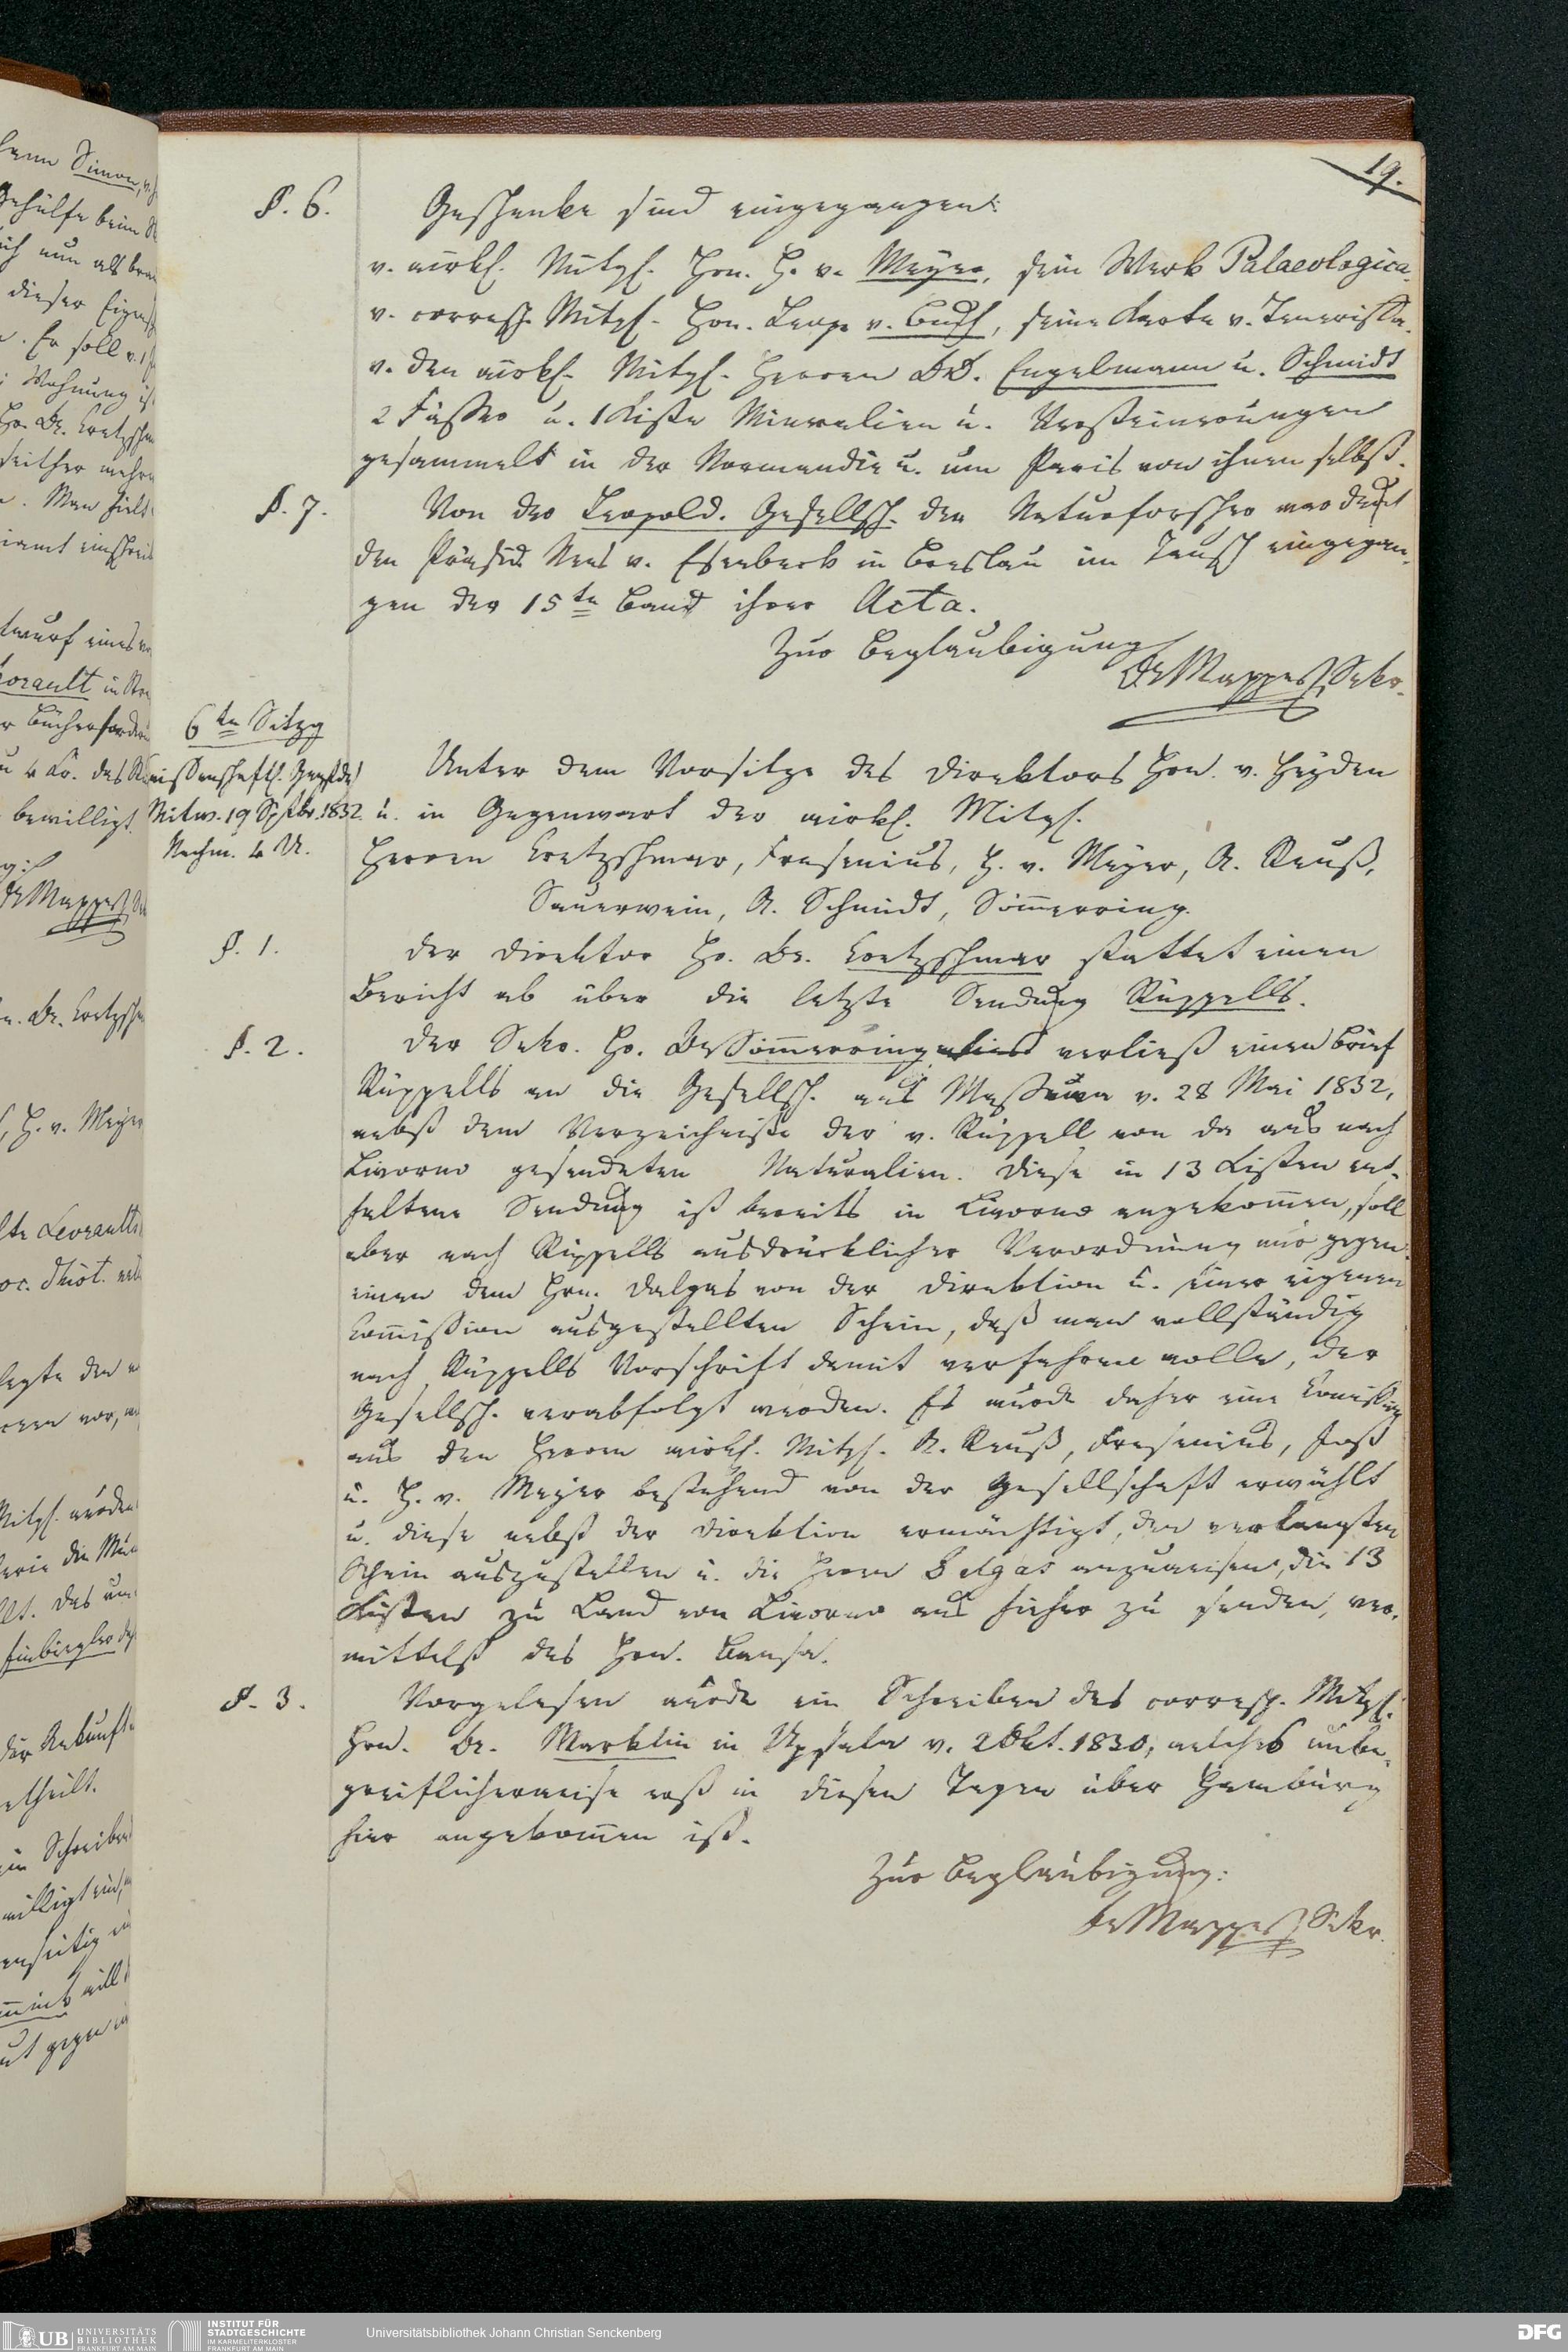 19.
§. 6. Geschenke sind eingegangen:
v. wirkl. Mitgl. Hrn. H. v. Meyer, sein Werk Palaeologica.
v. corresp. Mitgl. Hrn. Leop. v. Buch, seine Karte v. Teneriffa.
v. den wirkl. Mitgl. Herren DrD. Engelmann u. Schmidt
2 Fässer u. 1 Kiste Mineralien u. Versteinerungen
gesammelt in der Normandie u. um Paris von ihnen selbst.
§. 7. Von der Leopold. Gesellsch. der Naturforscher war durch
den Präsid. Nees v. Esenbeck in Breslau im Tausch eingegan-
gen der 15te Band ihrer Acta.
Zur Beglaubigung
Dr Mappes, Sekr.
6te Sitzg
wissenschaftl. Gegstde
Mitw. 19 Sptbr. 1832
Nachm. 4 U.
Unter dem Vorsitze des Direktors Hrn. v. Heyden
u. in Gegenwart der wirkl. Mitgl.
Herren Cretzschmar, Fresenius, H. v. Meyer, A. Reuß,
Sauerwein, A. Schmidt, Sömmerring.
§. 1. Der Direktor Hr. Dr. Cretzschmar stattet einen
Bericht ab über die letzte Sendung Rüppells.
§. 2. Der Sekr. Hr. Dr Sömmerring verließ einen Brief
Rüppells an die Gesellsch. aus Massaua v. 28 Mai 1832,
nebst dem Verzeichniße der v. Rüppell von da aus nach
Livorno gesendeten Naturalien. Diese in 13 Kisten ent-
haltene Sendung ist bereits in Livorno angekommen, soll
aber nach Rüppells ausdrücklicher Verordnung nur gegen
einen dem Hrn. Dalgas von der Direktion u. einer eigenen
Commißion ausgestellten Schein, daß man vollständig
nach Rüppells Vorschrift damit verfahren wolle, der
Gesellsch. verabfolgt werden. Es wurde daher eine Commißion
aus den Herren wirkl. Mitgl. A. Reuß, Fresenius, Jost
u. H. v. Meyer bestehend von der Gesellschaft erwählt
u. diese nebst der Direktion ermächtigt, den verlangten
Schein auszustellen u. die Herrn Dalgas anzuweisen, die 13
Kisten zu Land von Livorno aus hieher zu senden, ver-
mittelst des Hrn. Bansa.
§. 3. Vorgelesen wurde ein Schreiben des corresp. Mitgl.
Hrn. Dr. Marklin in Upsala v. 2 Okt. 1830, welches unbe-
greiflicherweise erst in diesen Tagen über Hamburg
hier angekommen ist.
Zur Beglaubigung:
Dr Mappes, Sekr.
UB UNIVERSITÄTS
BIBLIOTHEK
FRANKFURT AM MAIN
INSTITUT FÜR
STADTGESCHICHTE
IM KARMELITERKLOSTER
FRANKFURT AM MAIN
Universitätsbibliothek Johann Christian Senckenberg
DFG